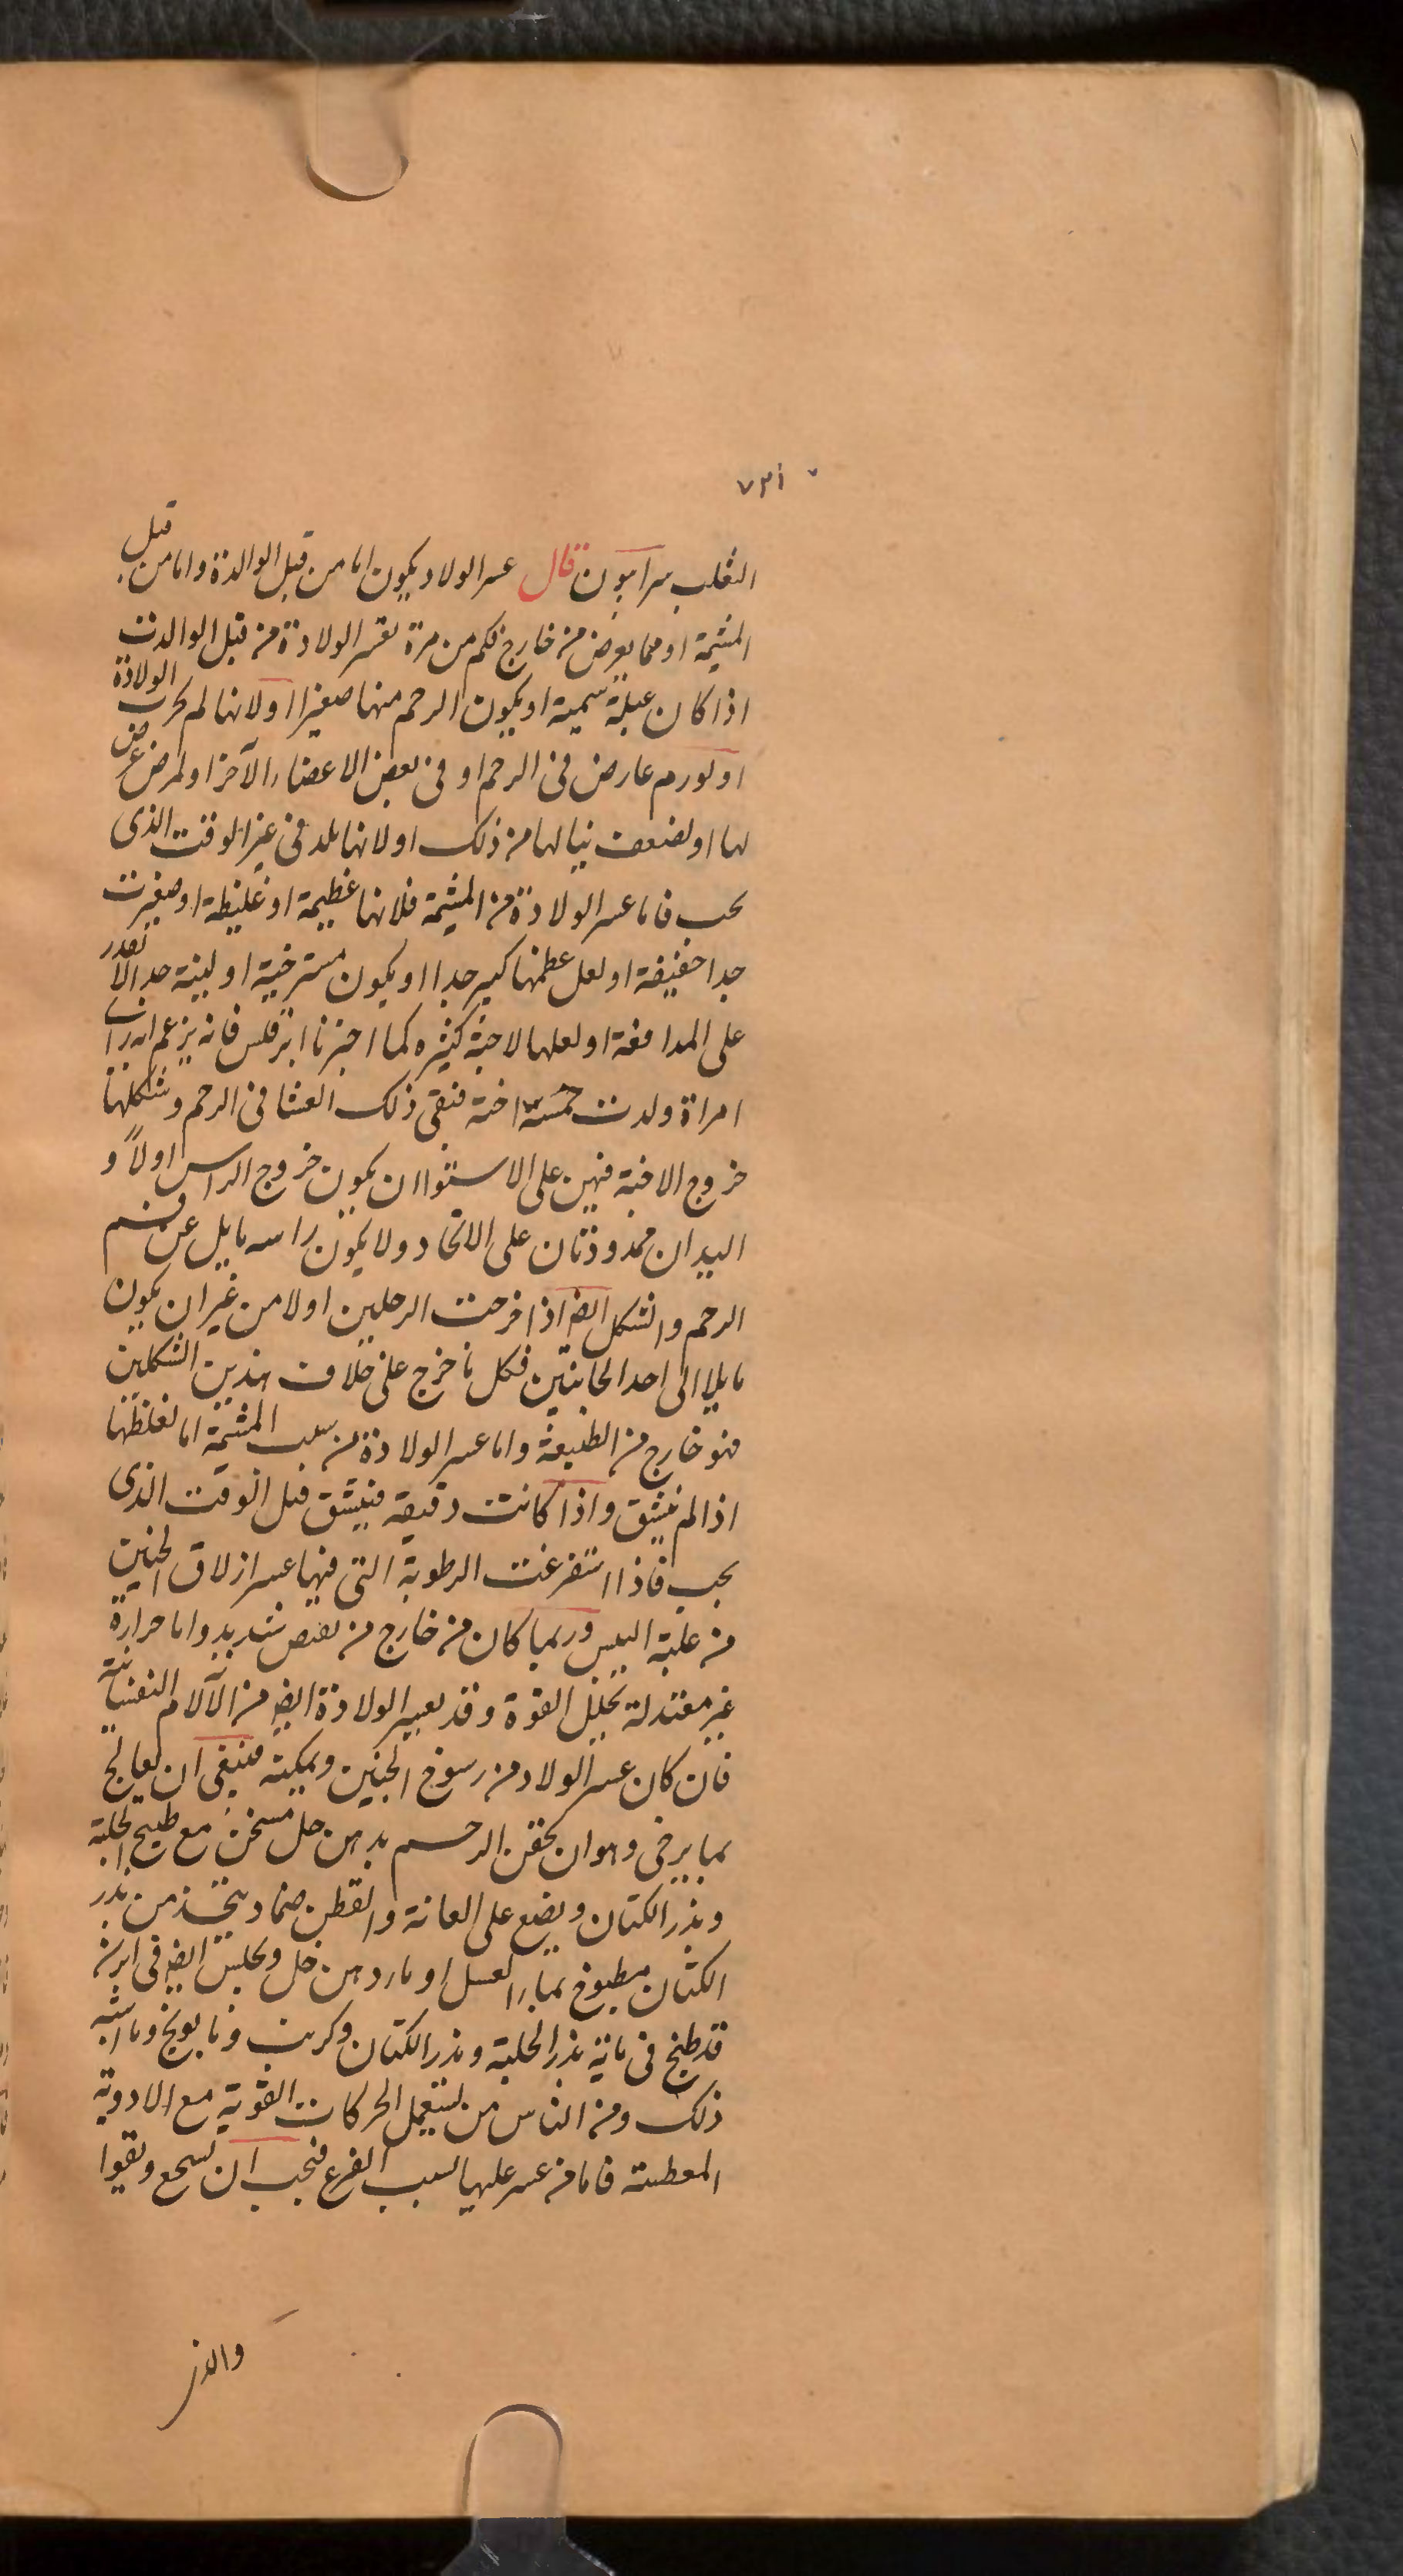 ٧٣١
الثعلب سرابيون قال عسر الولاد يكون اما من قبل الوالدة واما من قبل
المشيمة او مما يعرض من خارج فكم من مرة تعسر الولادة من قبل الوالدت
اذا كان عبلة سمينة او يكون الرحم منها صغيرا او لانها لم تجرب الولادة
او لورم عارض فى الرحم او فى بعض الاعضاء الآخر او لمرض عرض
لها او لضعف ينالها من ذلك او لانها تلد فى غير الوقت الذى
يجب فاما عسر الولادة من المشيمة فلانها عظيمة او غليظة او صغيرت
جدا خفيفة او لعل عظمها كبير جدا او يكون مسترخية او لينة جدا لا تقدر
على المدافعة او لعلها لاجنة كثيره كما اخبرنا ابرقلس فانه يزعم انه رات
امراة ولدت خمسة اجنة فبقى ذلك العشا فى الرحم وشكلها
خروج الاجنة فهين على الاستواا ن يكون خروج الراس اولاً و
اليدان ممدودتان على الاتحاد ولا يكون راسه مايل عن فم
الرحم والشكل ايض اذا خرجت الرجلين اولا من غير ان يكون
مايلا الى احد الجانبين فكل ما خرج على خلاف هذين الشكلين
فهو خارج من الطبيعة واما عسر الولادة من سبب المشيمة اما لغلظها
اذا لم ينشق واذا كانت دقيقة فينشق قبل الوقت الذى
يجب فاذا استفرغت الرطوبة التى فيها عسر ازلاق الجنين
من غلبة اليبس وربما كان من خارج من نقص شديد واما حرارة
غير معتدلة تحلل القوة وقد يعسر الولادة ايض من الآلام النفسانية
فان كان عسر الولاد من رسوخ الجنين وتمكينه فينبغى ان يعالج
بما يرخى وهو ان يحقن الرحم بدهن حل مسخن مع طبيخ الحلبة
وبذر الكتان ويضع على العانة والقطن ضماد يتخذ من بذر
الكتان مطبوخ بماء العسل او ماء ودهن حل ويجلس ايض فى ابزن
قد طبخ فى مائه بذر الحلبة وبذر الكتان وكرنب وبابونج وما اشبه
ذلك ومن الناس من يستعمل الحركات القوية مع الادوية
المعطسة فاما من عسر عليها لسبب الفزع فيجب ان تشجع وتقوا
والذ